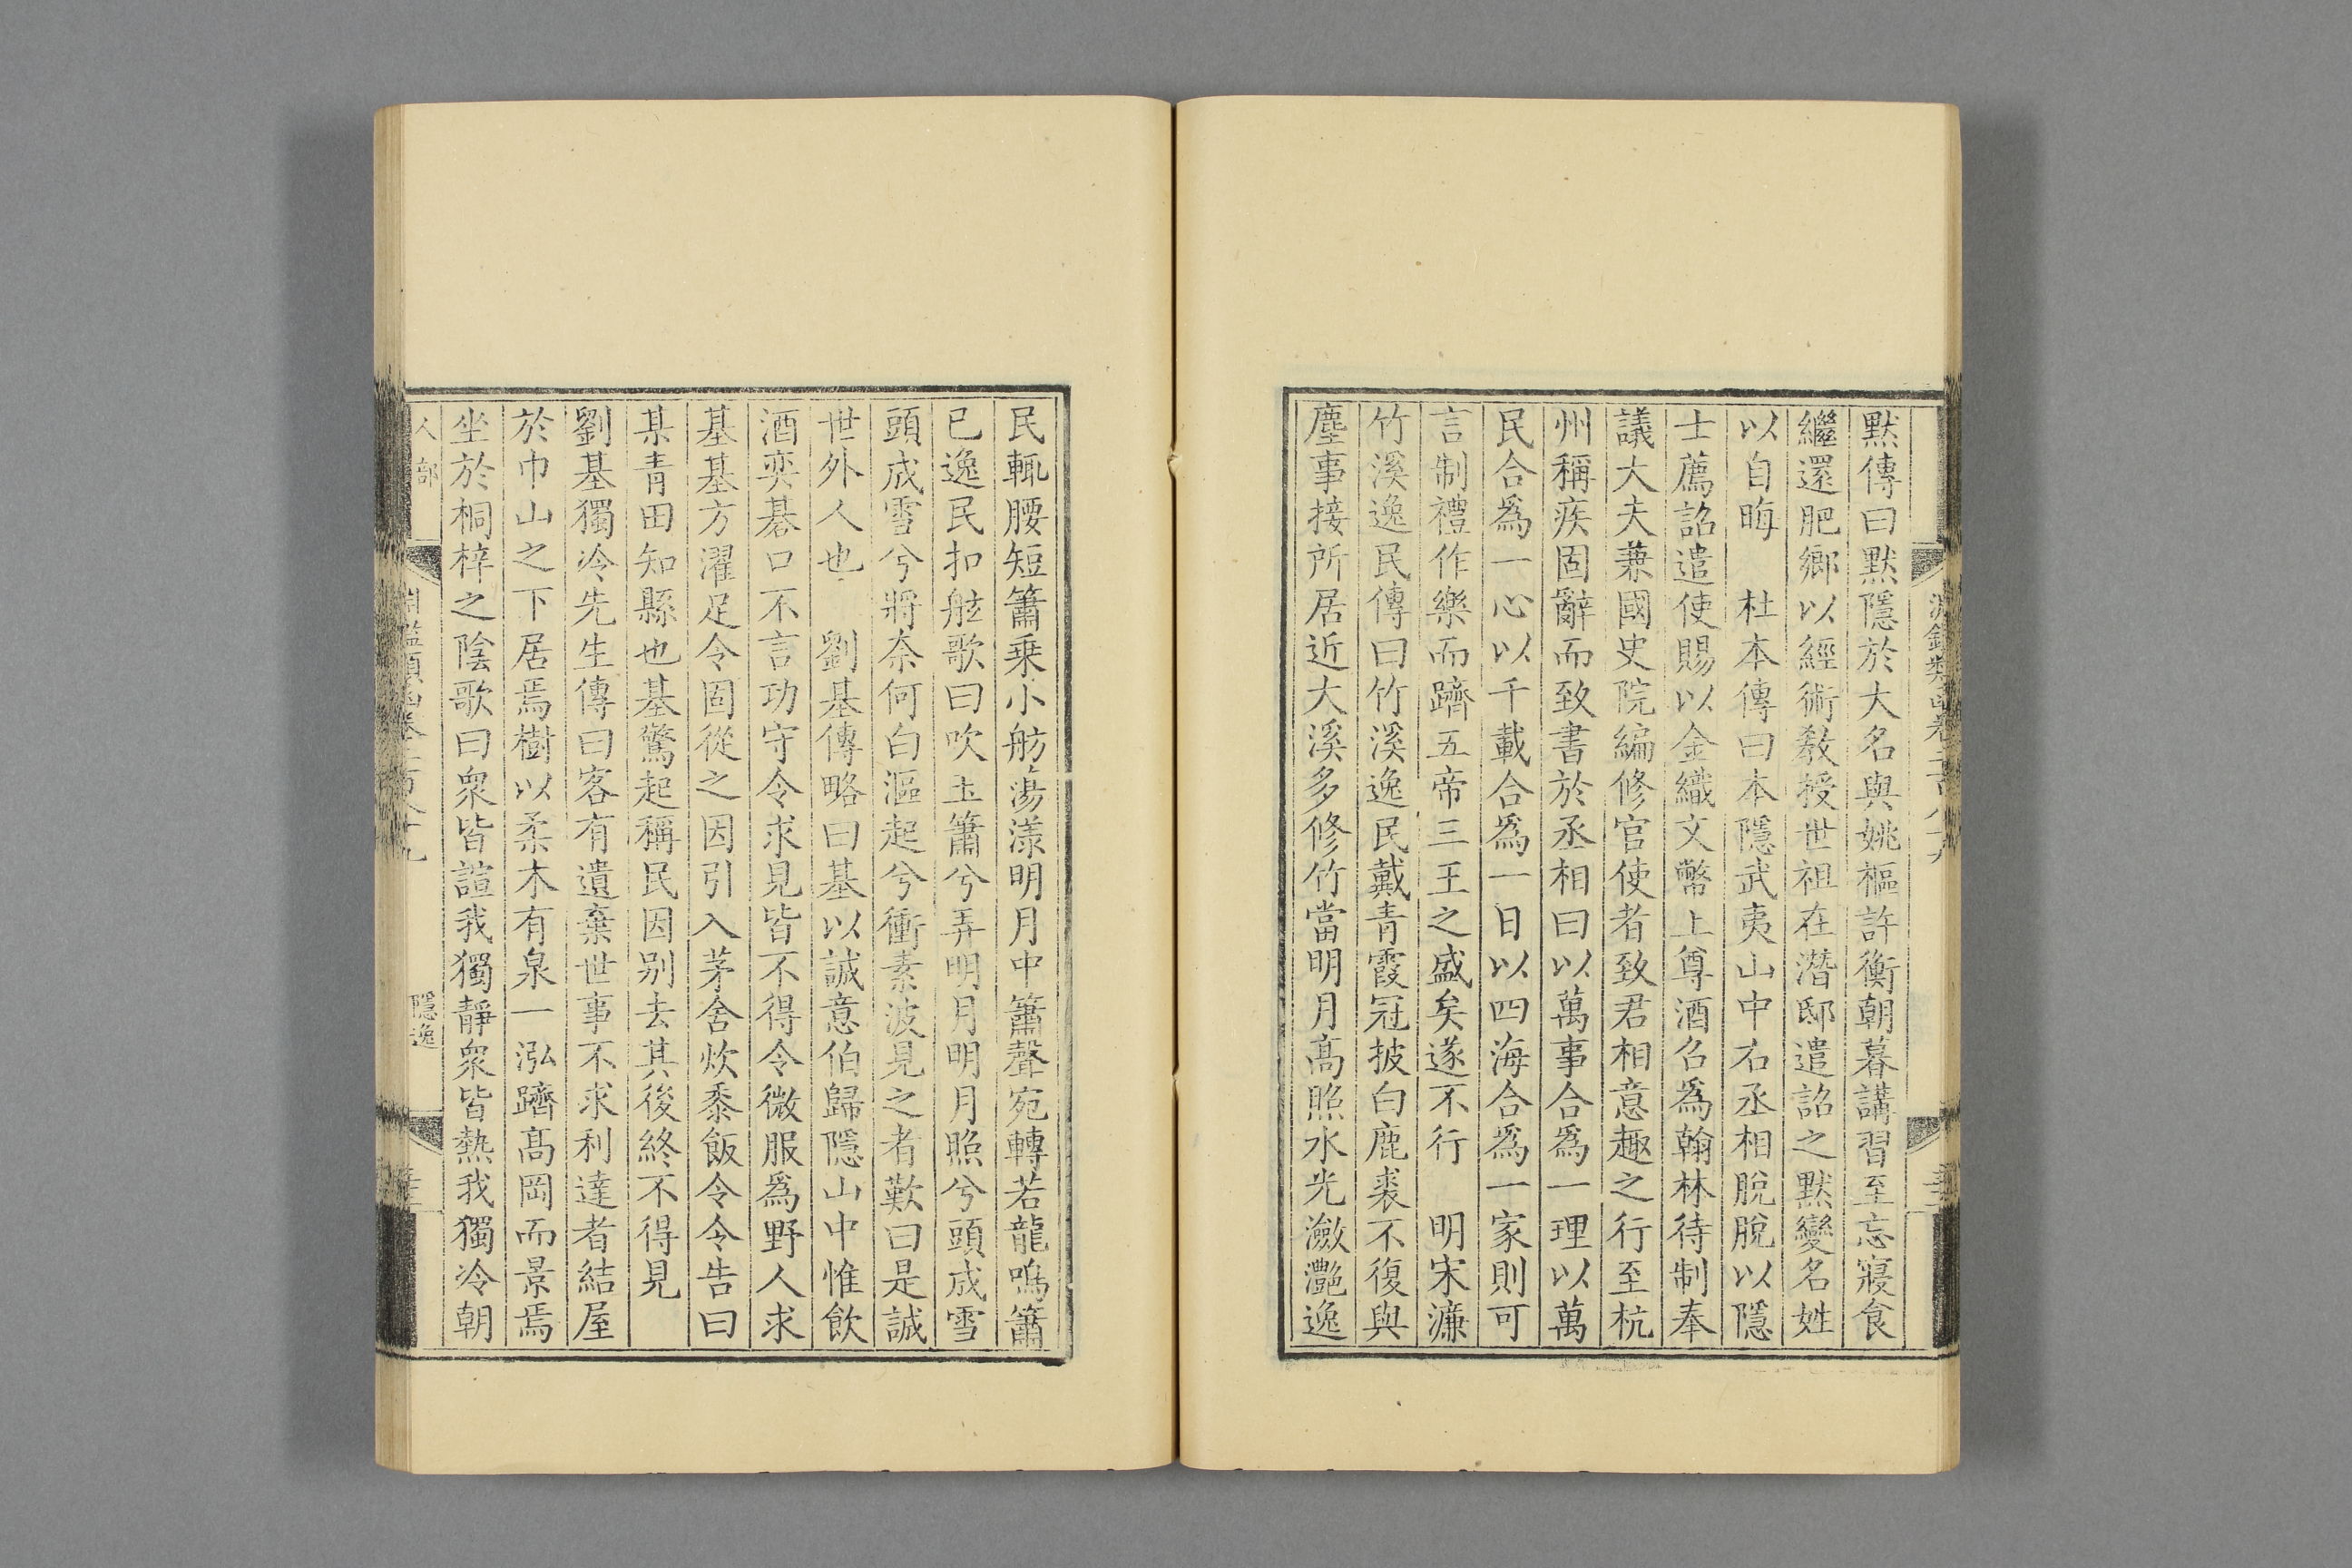 默傳曰默隱於大名與姚樞許衡朝暮講習至忘寢食
繼還肥鄉以經術敎授世祖在潛邸遣詔之默變名姓
以自晦　杜本傳曰本隱武夷山中右丞相脫脫以隱
士薦詔遣使賜以金織文幣上尊酒召爲翰林待制奉
議大夫兼國史院編修官使者致君相意趣之行至杭
州稱疾固辭而致書於丞相曰以萬事合爲一理以萬
民合爲一心以千載合爲一日以四海合爲一家則可
言制禮作樂而躋五帝三王之盛矣遂不行　明宋濂
竹溪逸民傳曰竹溪逸民戴青霞冠披白鹿裘不復與
塵事接所居近大溪多修竹當明月高照水光瀲灩逸
民輒腰短簫乘小舫蕩漾明月中簫聲宛轉若龍鳴簫
已逸民扣舷歌曰吹玉簫兮弄明月明月照兮頭成雪
頭成雪兮將奈何白漚起兮衝素波見之者歎曰是誠
世外人也　劉基傳略曰基以誠意伯歸隱山中惟飲
酒奕棊口不言功守令求見皆不得令微服爲野人求
基基方濯足令固從之因引入茅舍炊黍飯令令告曰
某青田知縣也基驚起稱民因别去其後終不得見
劉基獨冷先生傳曰客有遺棄世事不求利達者結屋
於巾山之下居焉樹以柔木有泉一泓躋高岡而景焉
坐於桐梓之陰歌曰衆皆諠我獨靜衆皆熱我獨冷朝
人部
隱逸